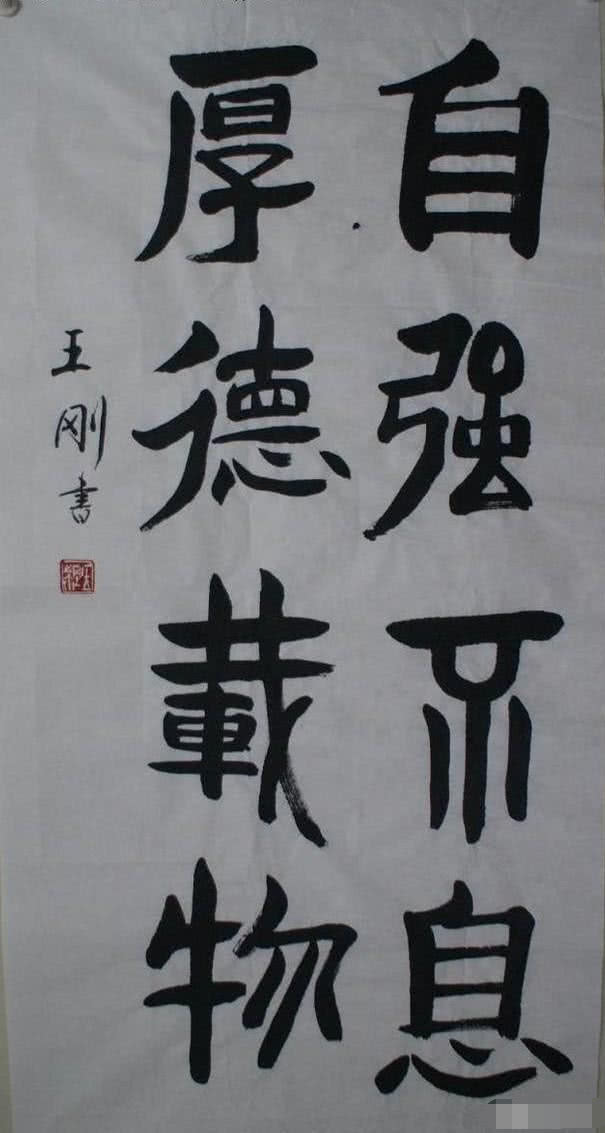 自强不息
厚德載物
王刚书